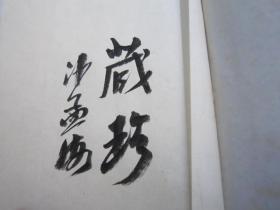 藏珍
沙孟海